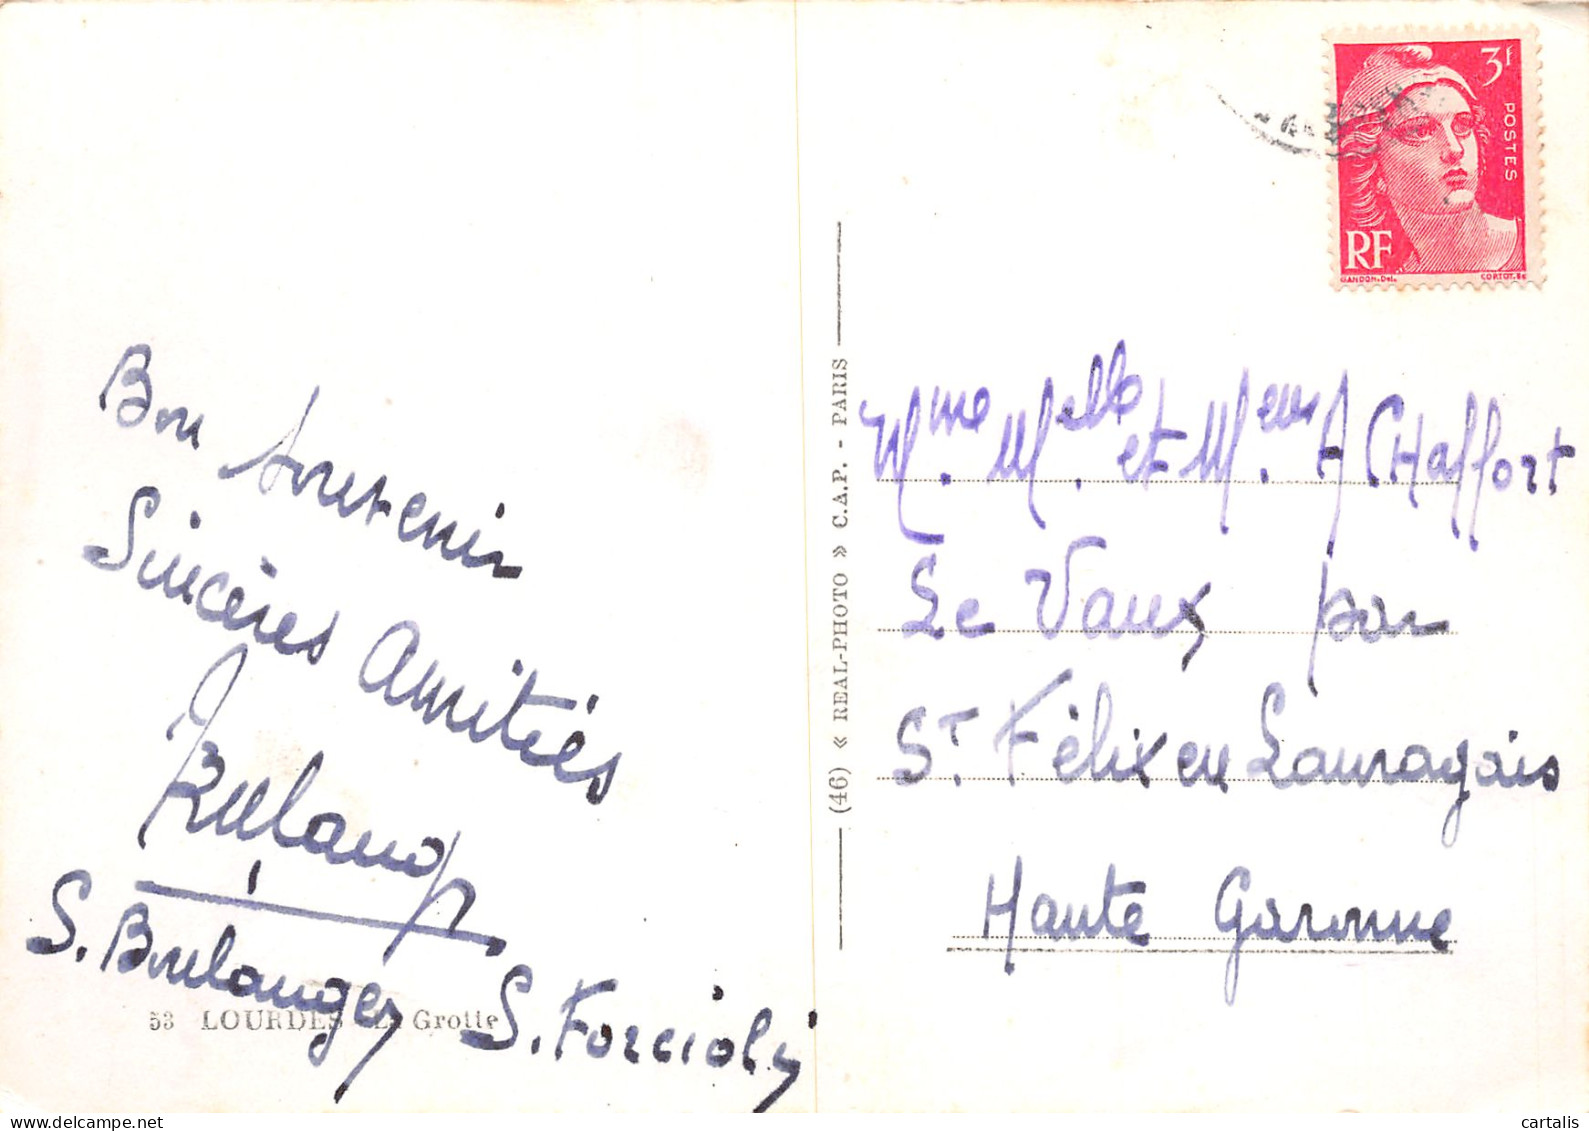 Bon Souvenir
Sincères Amitiés
S. Boulanger S. Forcioli
53 LOURDES La Grotte
(46) « REAL-PHOTO » C.A.P. - PARIS
3F
POSTES
RF
GANDON.Del. CORTOT.Sc
Mme. Melle. et M.eur A CHaffort
Le Vaux par
St. Félix en Lauragais
Haute Garonne
cartalis